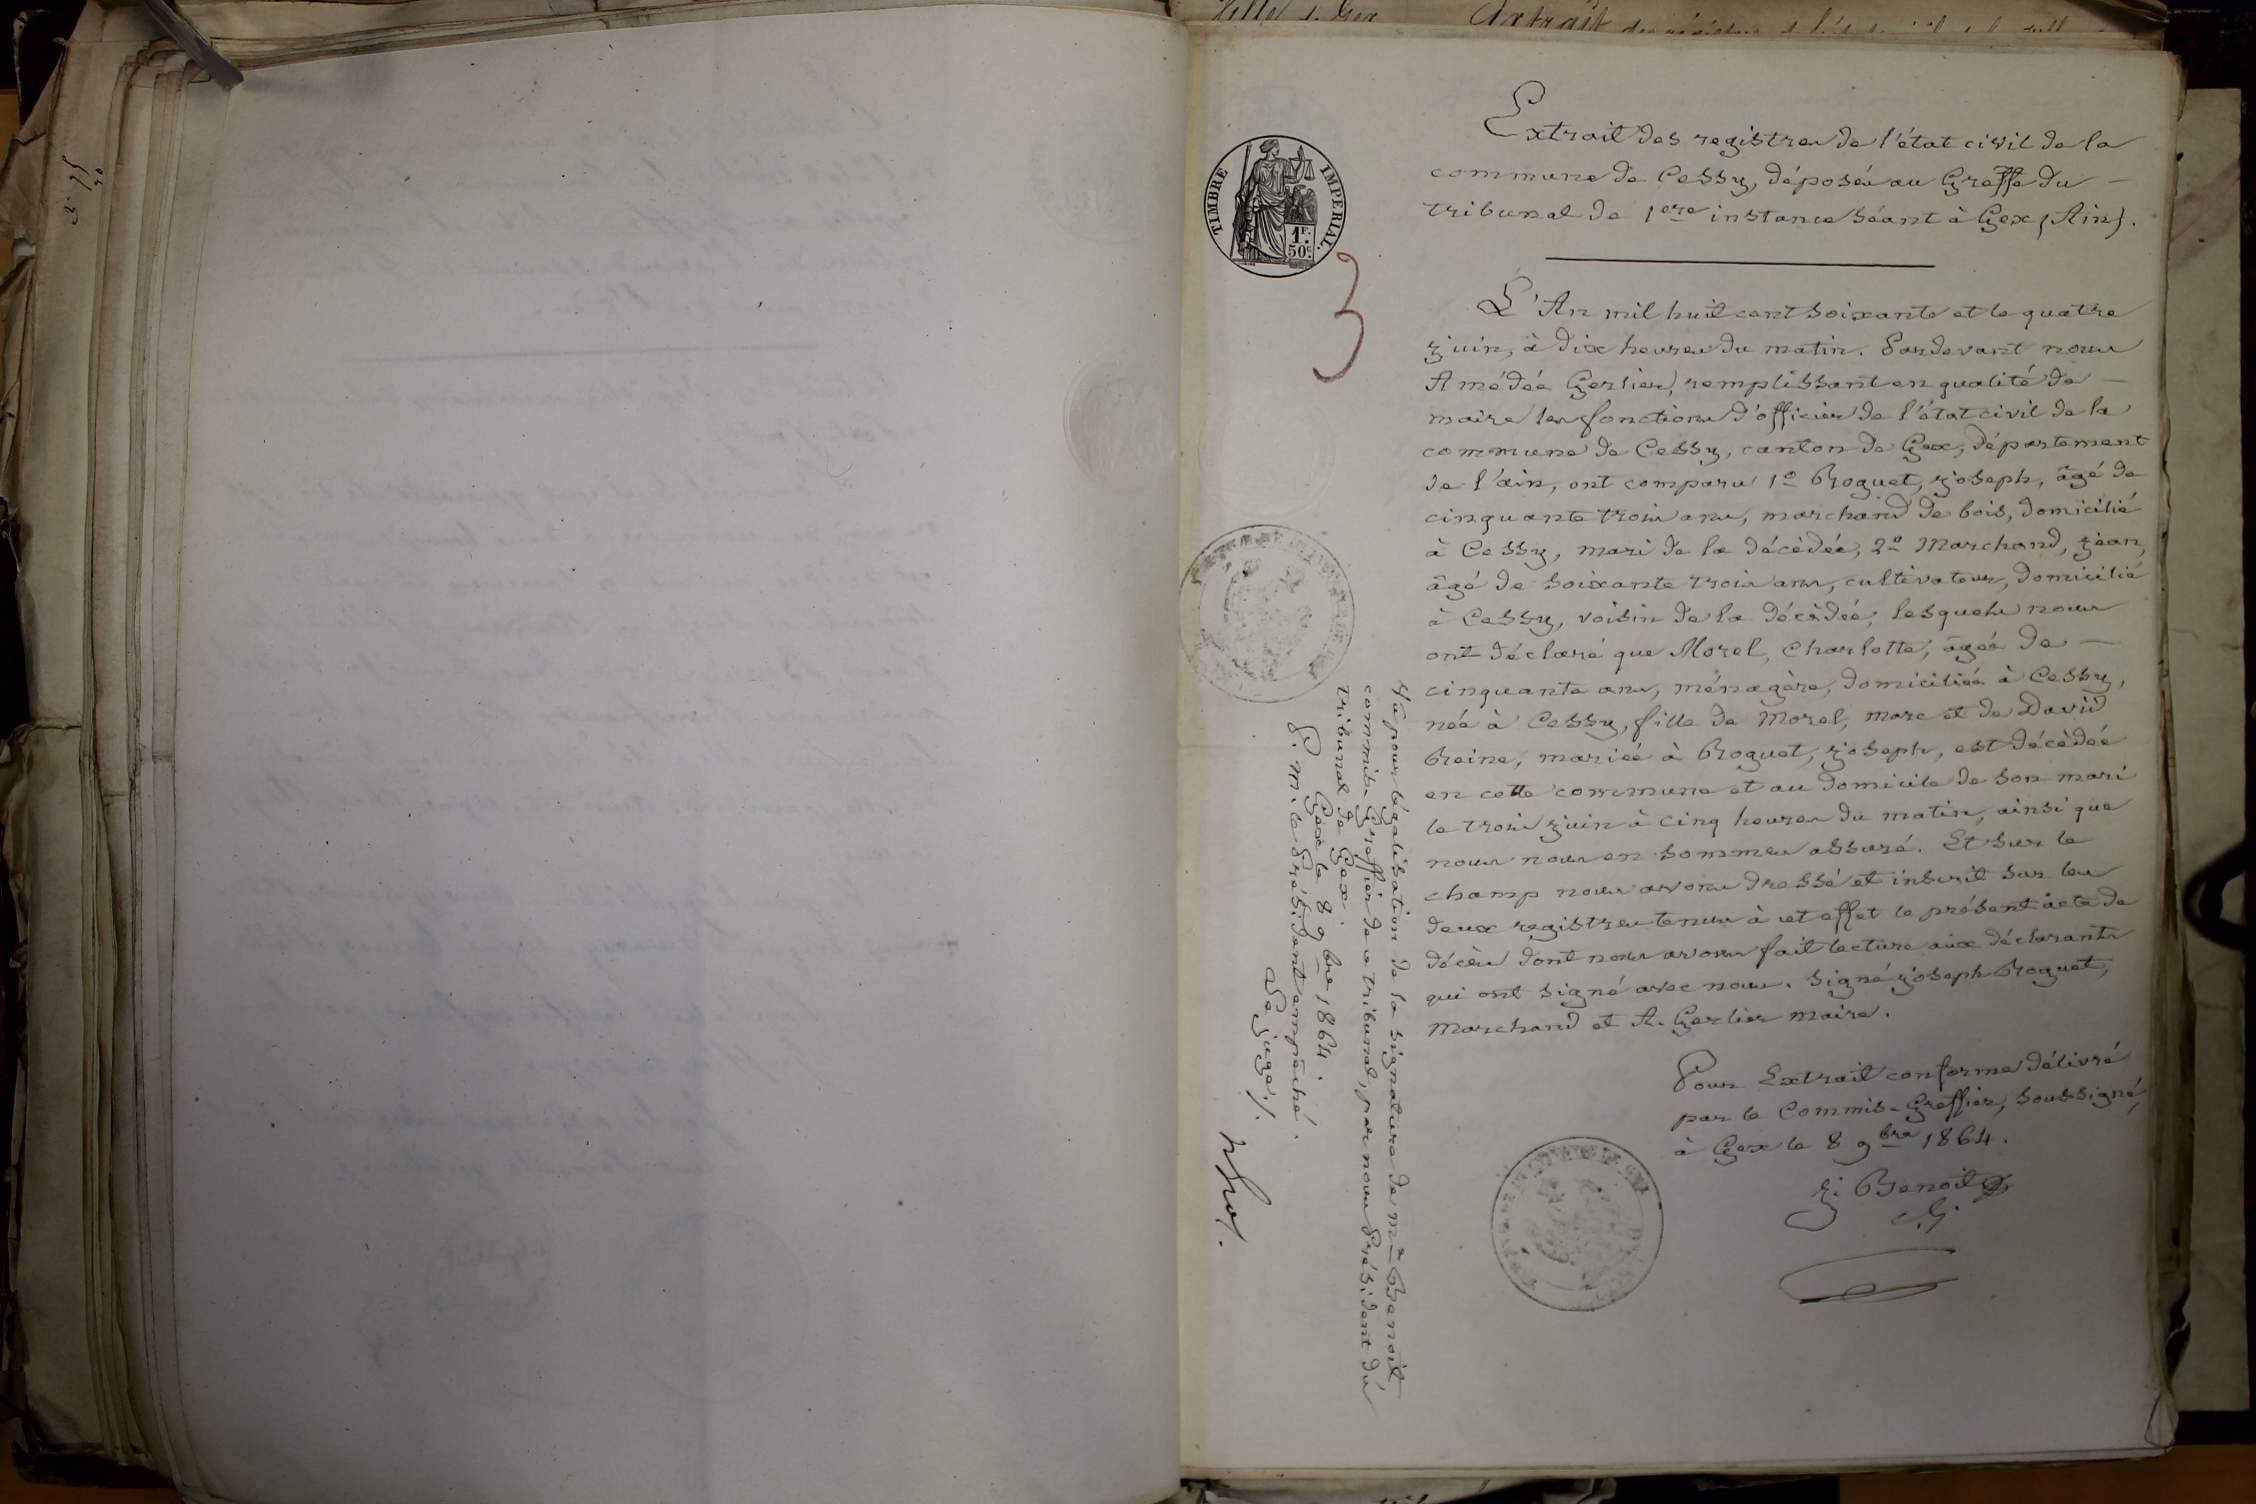 Extrait des registres de l'état civil de la
commune de Cessy, déposés au Greffe du —
tribunal de 1ere instance séant à Gex (Ain).
TIMBRE IMPERIAL.
1F.
50c.
3
L'An mil huit cent soixante et le quatre
juin, à dix heures du matin. Pardevant nous
Amédée Gerlier, remplissant en qualité de —
maire les fonctions d'officier de l'état civil de la
commune de Cessy, canton de Gex, département
de l'ain, ont comparu 1o Roguet, joseph, âgé de
cinquante trois ans, marchand de bois, domicilié
à Cessy, mari de la décédée, 2o Marchand, jean,
âgé de soixante trois ans, cultivateur, domicilié
à Cessy, voisin de la décédée; lesquels nous
ont déclaré que Morel, Charlotte, âgée de —
cinquante ans, ménagère, domiciliée à Cessy,
née à Cessy, fille de Morel, marc et de David
Reine, mariée à Roguet, joseph, est décédée
en cette commune et au domicile de son mari
le trois juin à cinq heures du matin, ainsi que
nous nous en sommes assuré. Et sur le
champ nous avons dressé et inscrit sur les
deux registres tenus à cet effet le présent acte de
décès dont nous avons fait lecture aux déclarants
qui ont signé avec nous. Signé joseph Roguet,
Marchand et A. Gerlier maire.
Pour Extrait conforme délivré
par le Commis-Greffier, soussigné,
à Gex le 8 9bre 1864.
j. Benoit
c. G.
Vu pour légalisation de la signature de Me Benoit
commis-Greffier de ce tribunal, par nous Président du
tribunal de Gex.
Gex le 8 9bre 1864.
P. M. le Président empêché.
Le juge ./.